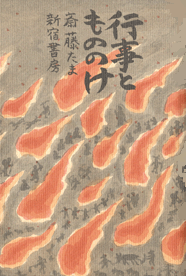 行事と
もののけ
斎藤たま
新宿書房